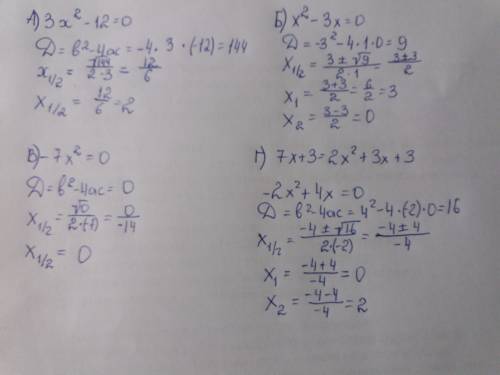 А) 3x² - 12 = 0
D = b² - 4ac = -4 · 3 · (-12) = 144
x₁/₂ = √144/2·3 = 12/6
x₁/₂ = 12/6 = 2
Б) x² - 3x = 0
D = -3² - 4·1·0 = 9
x₁/₂ = 3 ± √9/2·1 = 3±3/2
x₁ = 3+3/2 = 6/2 = 3
x₂ = 3-3/2 = 0
В) - 7x² = 0
D = b² - 4ac = 0
x₁/₂ = √0/2·(-7) = 0/-14
x₁/₂ = 0
Г) 7x + 3 = 2x² + 3x + 3
-2x² + 4x = 0
D = b² - 4ac = 4² - 4·(-2)·0 = 16
x₁/₂ = -4 ± √16/2·(-2) = -4 ± 4/-4
x₁ = -4+4/-4 = 0
x₂ = -4-4/-4 = 2